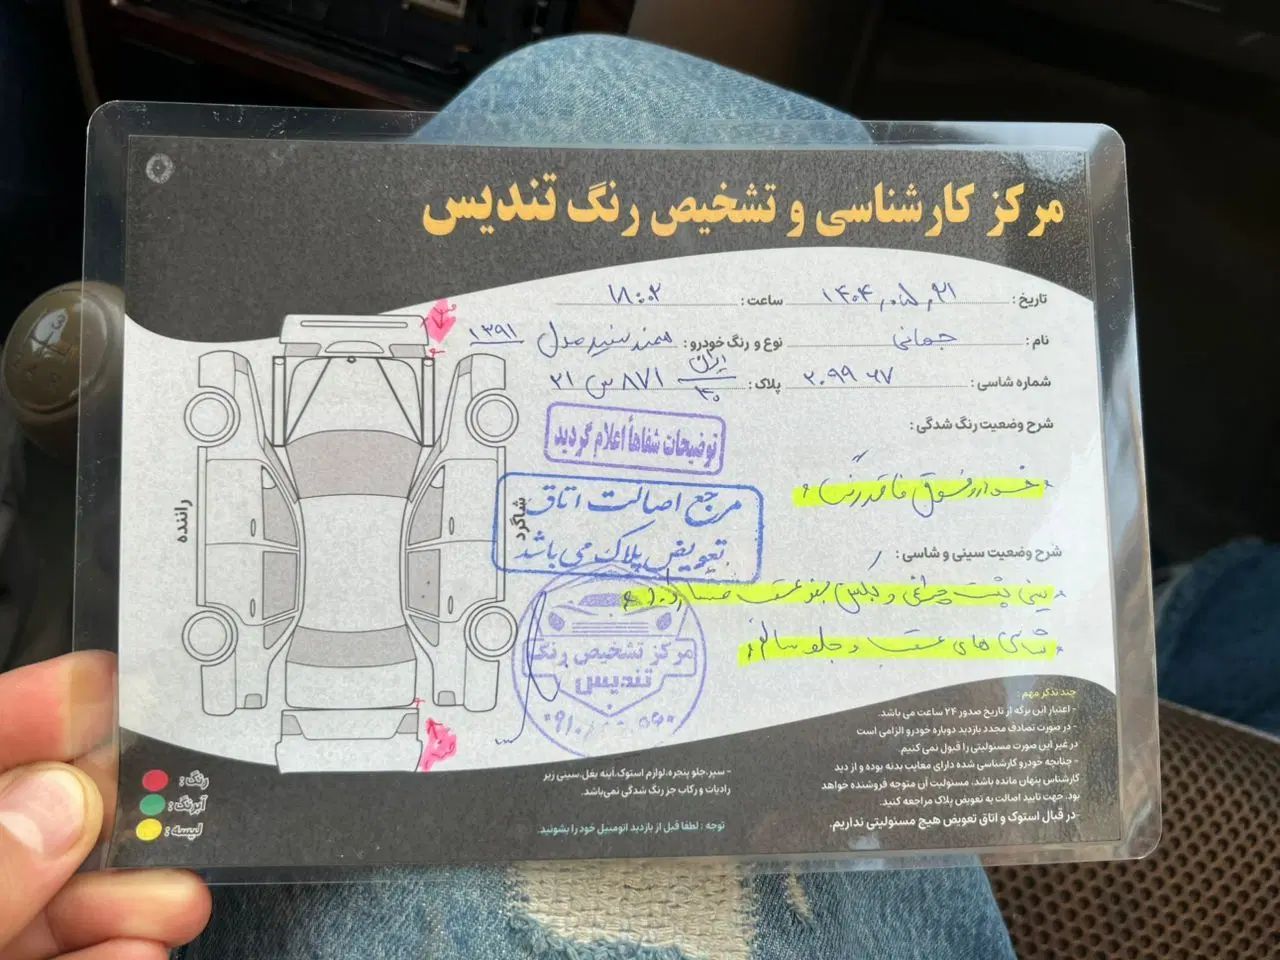 مرکز کارشناسی و تشخیص رنگ تندیس
تاریخ : ۱۴۰۴٫۰۵٫۲۱ ساعت : ۱۸:۰۲
نام : جهانی نوع و رنگ خودرو : سمند سفید مدل ۱۳۹۱
شماره شاسی : ۲۰۹۹۶۷ پلاک : ایران ۳۰ ۸۷۱ س ۲۱
شرح وضعیت رنگ شدگی :
توضیحات شفاهاً اعلام گردید
خودرو فوق فاقد رنگ
مرجع اصالت اتاق
تعویض پلاک می باشد
شرح وضعیت سینی و شاسی :
سینی پشت چراغی و
شاسی های عقب و جلو سالم
مرکز تشخیص رنگ
تندیس
راننده
شاگرد
چند تذکر مهم :
- اعتبار این برگه از تاریخ صدور ۲۴ ساعت می باشد.
- در صورت تصادف مجدد بازدید دوباره خودرو الزامی است
در غیر این صورت مسئولیتی را قبول نمی کنیم.
- چنانچه خودرو کارشناسی شده دارای معایب بدنه بوده و از دید
کارشناس پنهان مانده باشد، مسئولیت آن متوجه فروشنده خواهد
بود. جهت تایید اصالت به تعویض پلاک مراجعه کنید.
-در قبال استوک و اتاق تعویض هیچ مسئولیتی نداریم.
- سپر، جلو پنجره، لوازم استوک، آینه بغل، سینی زیر
رادیات و رکاب جز رنگ شدگی نمی‌باشد.
توجه : لطفا قبل از بازدید اتومبیل خود را بشوئید.
رنگ :
آبرنگ :
لیسه :